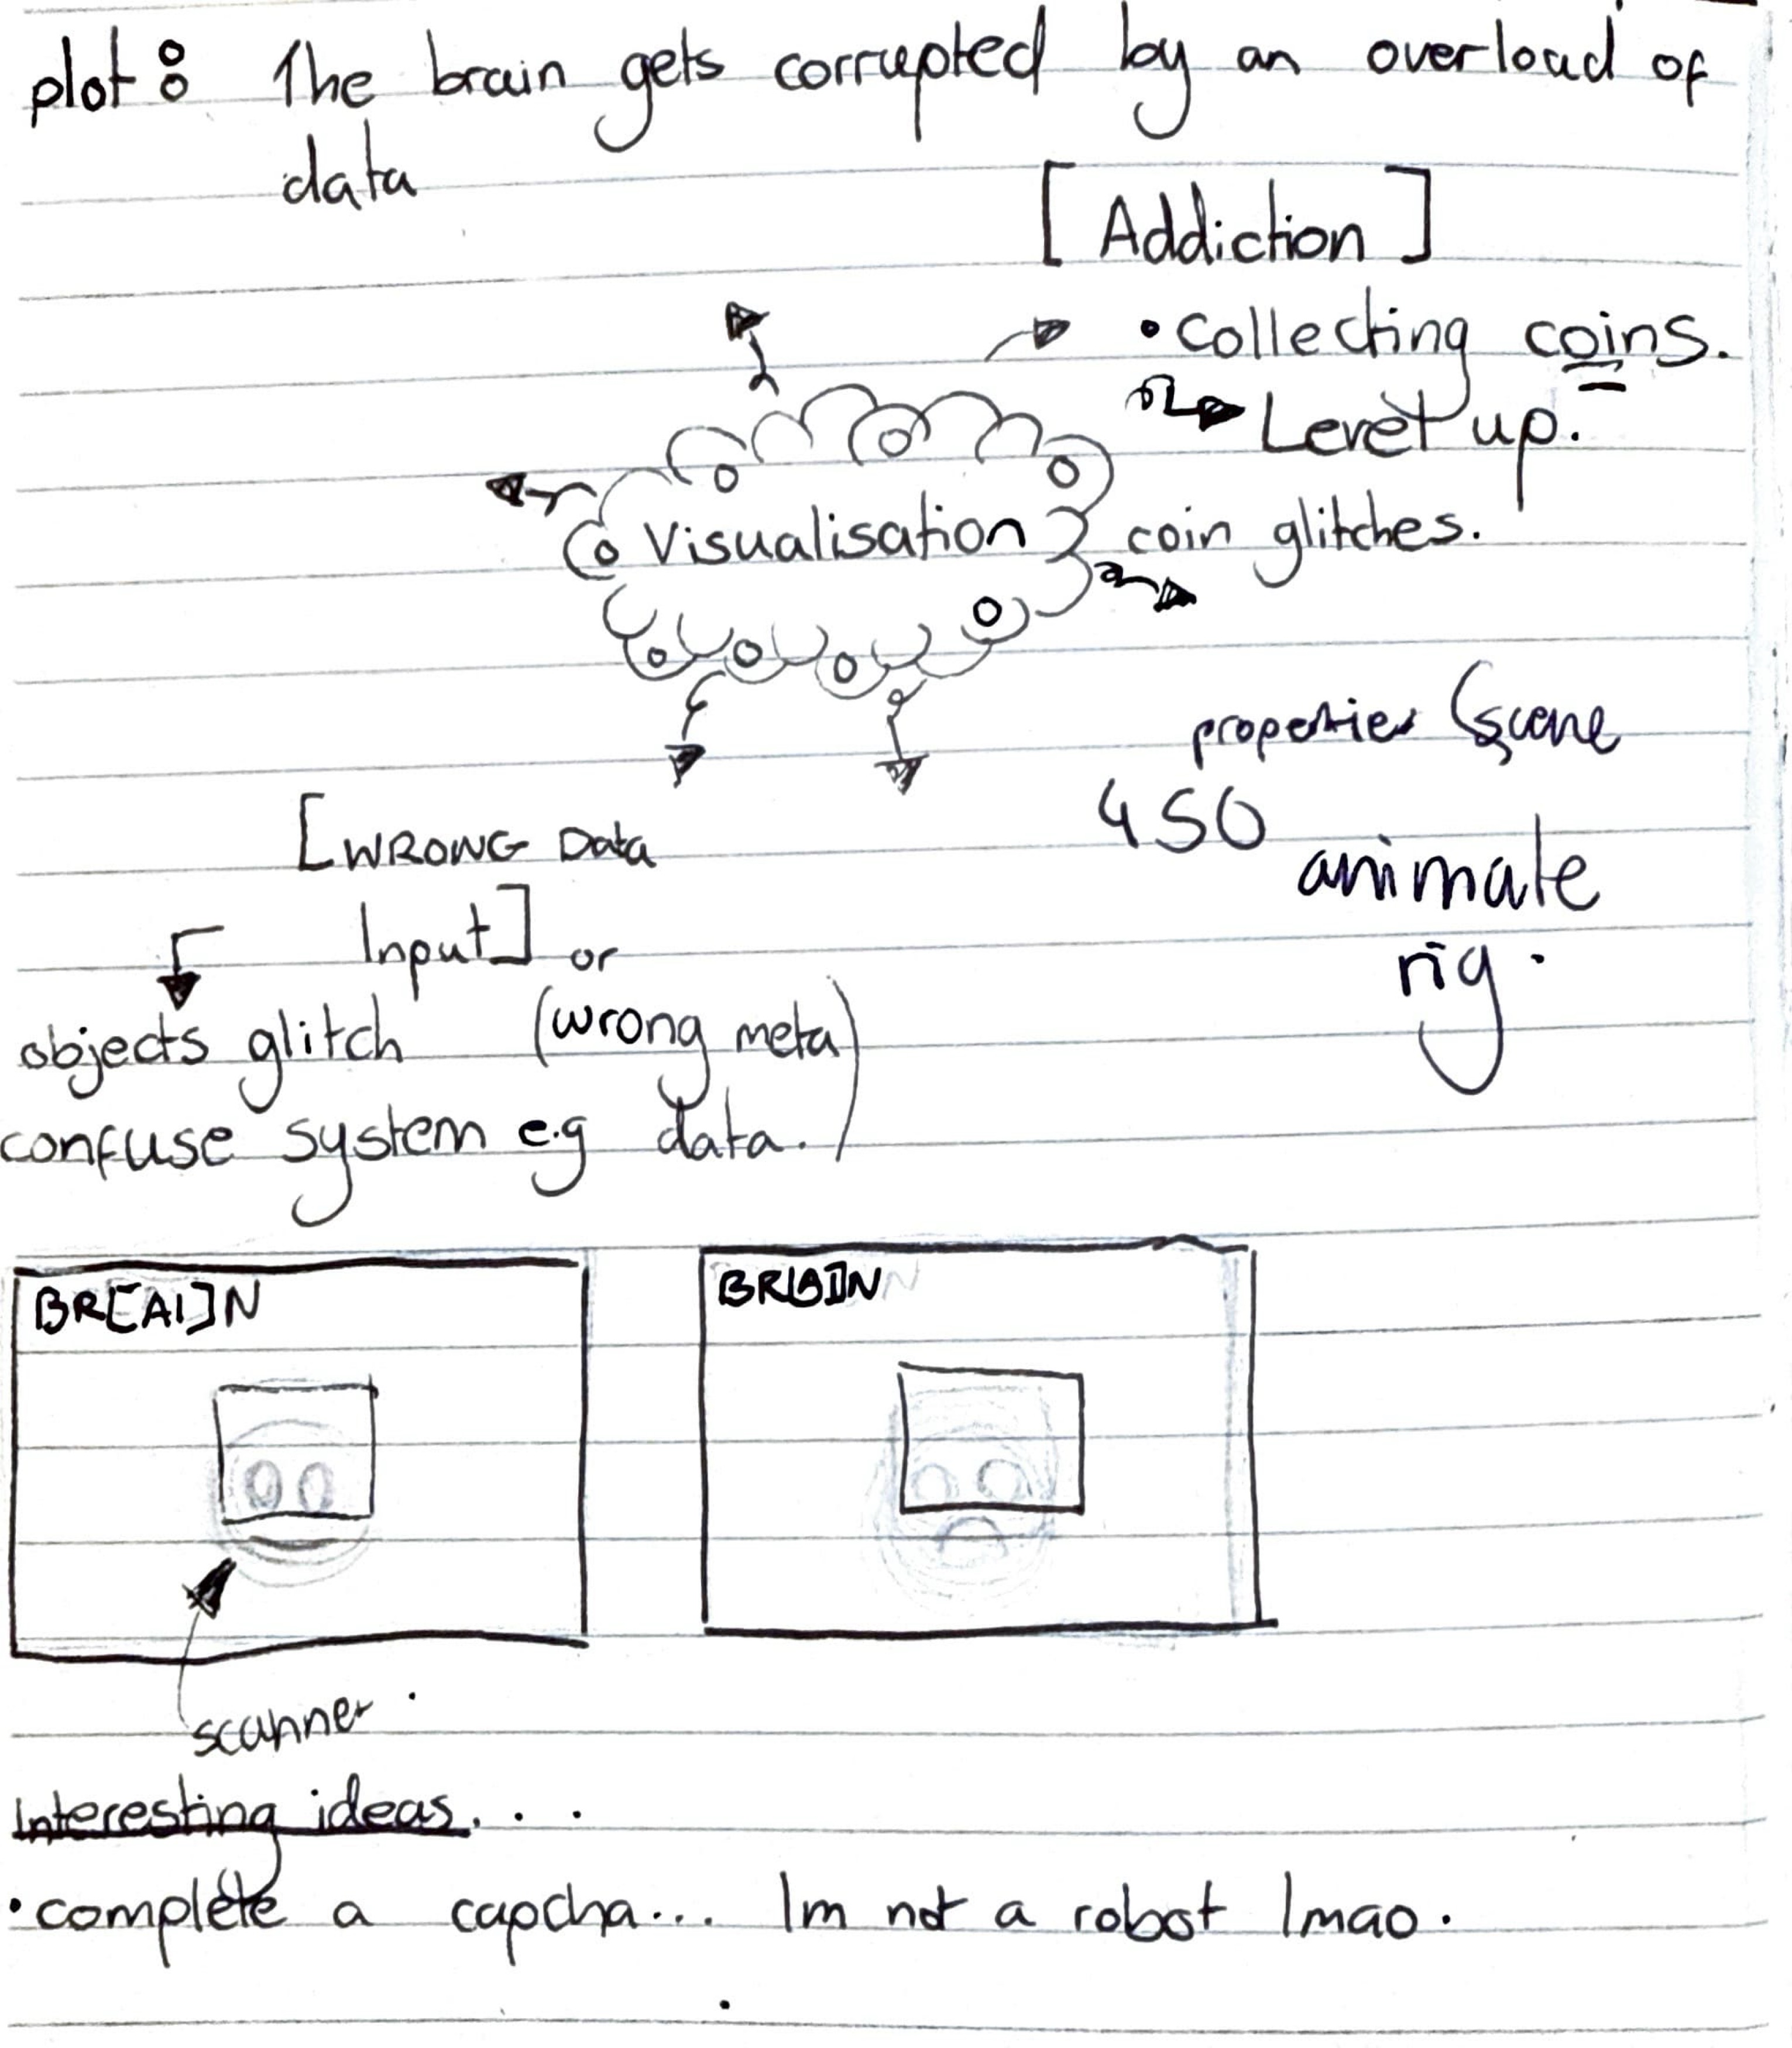 plot: The brain gets corrupted by an overload of
data
[Addiction]
• collecting coins.
Level up.
Visualisation
coin glitches.
properties (scene
450
animate
rig.
[WRONG Data
Input] or
(wrong meta
data.)
objects glitch
confuse system e.g
BR[AI]N
BR[AI]N
scanner
Interesting ideas...
• complete a capcha... Im not a robot lmao.